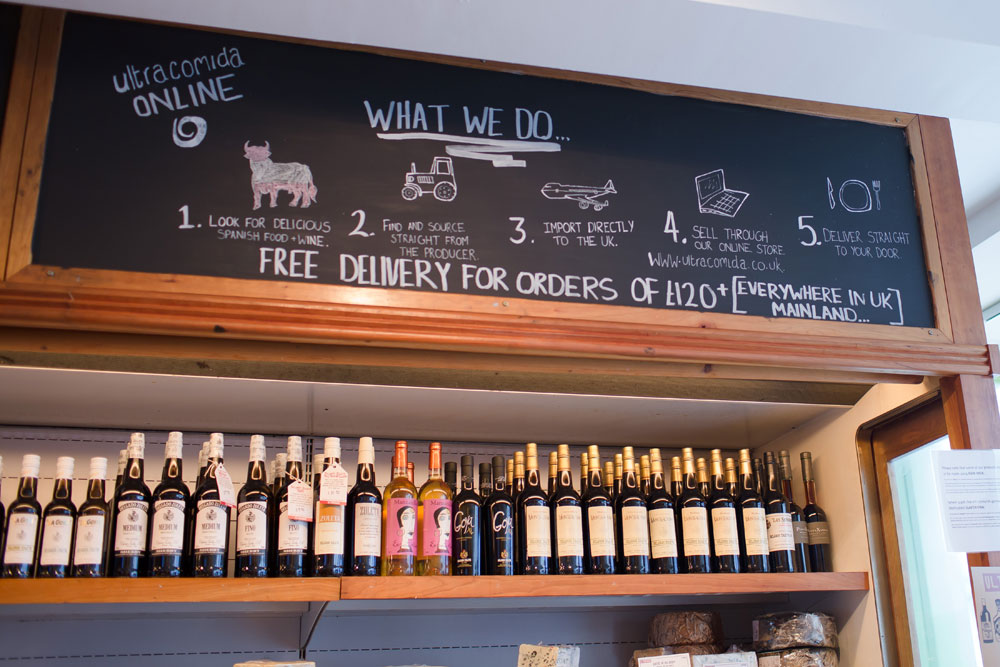 ultracomida
ONLINE
WHAT WE DO...
1. LOOK FOR DELICIOUS
SPANISH FOOD + WINE.
2. FIND AND SOURCE
STRAIGHT FROM
THE PRODUCER.
3. IMPORT DIRECTLY
TO THE UK.
4. SELL THROUGH
OUR ONLINE STORE
WWW.ultracomida.co.uk.
5. DELIVER STRAIGHT
TO YOUR DOOR.
FREE DELIVERY FOR ORDERS OF £120+ [EVERYWHERE IN UK]
MAINLAND...
MEDIUM
MEDIUM
ZULETA
ZULETA
Goya
Goya